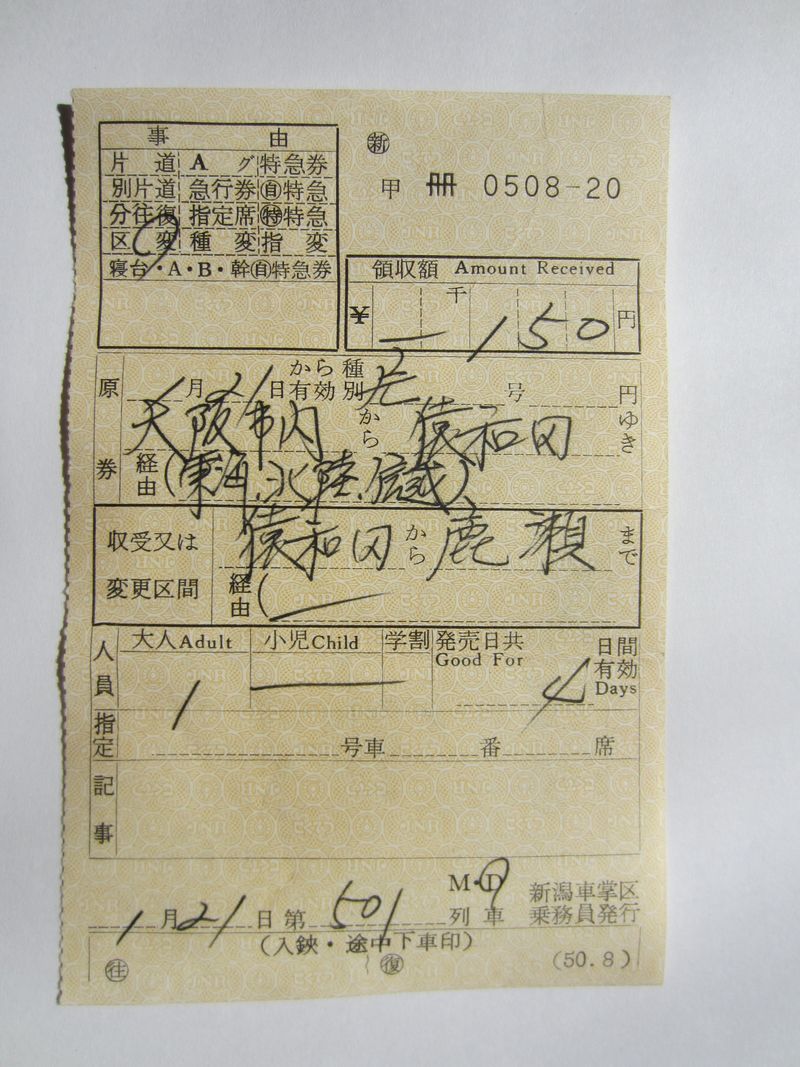 事 由
片道 A グ 特急券
別片道 急行券 ㊂特急
分往復 指定席 ㊕特急
区変 種変 指変
寝台・A・B・幹自特急券
新
甲 冊 0508-20
領収額 Amount Received
¥ 千 150 円
原券
1月21日から有効 種別 号 円
大阪市内から猿和田ゆき
経由(東海、北陸、信越)
収受又は変更区間
猿和田から鹿瀬まで
経由(
人員
大人Adult 小児Child 学割 発売日共 Good For 日間有効 Days
1 4
指定 号車 番 席
記事
1月21日第501 M・D列車 新潟車掌区乗務員発行
(入鋏・途中下車印)
往 復 (50.8)